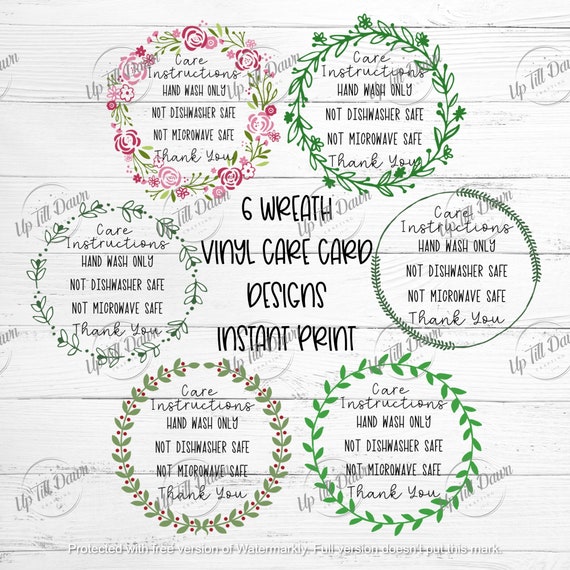 Care
Instructions
HAND WASH ONLY
NOT DISHWASHER SAFE
NOT MICROWAVE SAFE
Thank You
Care
Instructions
HAND WASH ONLY
NOT DISHWASHER SAFE
NOT MICROWAVE SAFE
Thank You
6 WREATH
VINYL CARE CARD
DESIGNS
INSTANT PRINT
Care
Instructions
HAND WASH ONLY
NOT DISHWASHER SAFE
NOT MICROWAVE SAFE
Thank You
Care
Instructions
HAND WASH ONLY
NOT DISHWASHER SAFE
NOT MICROWAVE SAFE
Thank You
Care
Instructions
HAND WASH ONLY
NOT DISHWASHER SAFE
NOT MICROWAVE SAFE
Thank You
Care
Instructions
HAND WASH ONLY
NOT DISHWASHER SAFE
NOT MICROWAVE SAFE
Thank You
Up Till Dawn
Protected with free version of Watermarkly. Full version doesn't put this mark.